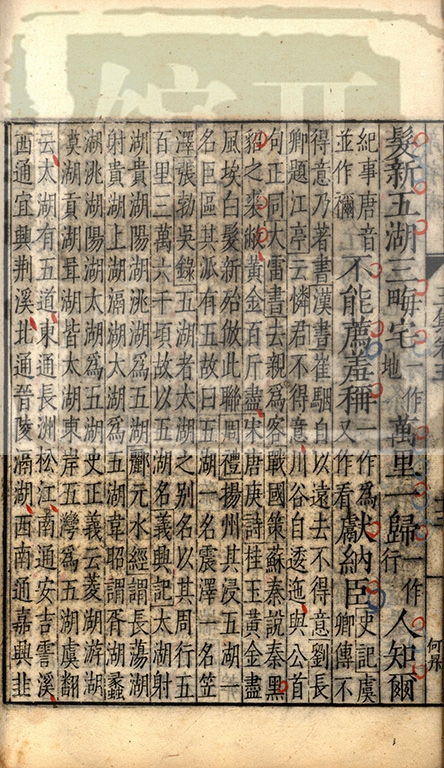 髮新五湖三畮宅一作地萬里一歸一作行人知爾
紀事唐音並作禰不能薦羞稱一作為又作看獻納臣史記虞卿傳不
得意乃著書漢書崔駰自以遠去不得意劉長
卿題江亭云憐君不得意川谷自逶迤與公首
句正同大雷書去親為客戰國策蘇秦說秦黑
貂之裘敝黃金百斤盡宋唐庚詩桂玉黃金盡
風埃白髮新殆倣此聯周禮揚州其浸五湖一
名巨區其派有五故曰五湖一名震澤一名笠
澤張勃吳錄五湖者太湖之別名以其周行五
百里三萬六千頃故以五湖名義興記太湖射
湖貴湖陽湖洮湖為五湖酈元水經謂長蕩湖
射貴湖上湖滆湖太湖為五湖韋昭謂胥湖蠡
湖洮湖陽湖太湖為五湖史正義云菱湖游湖
漠湖貢湖胥湖皆太湖東岸五灣為五湖虞翻
云太湖有五道東通長洲松江南通安吉霅溪
西通宜興荊溪北通晉陵滆湖西南通嘉興韭